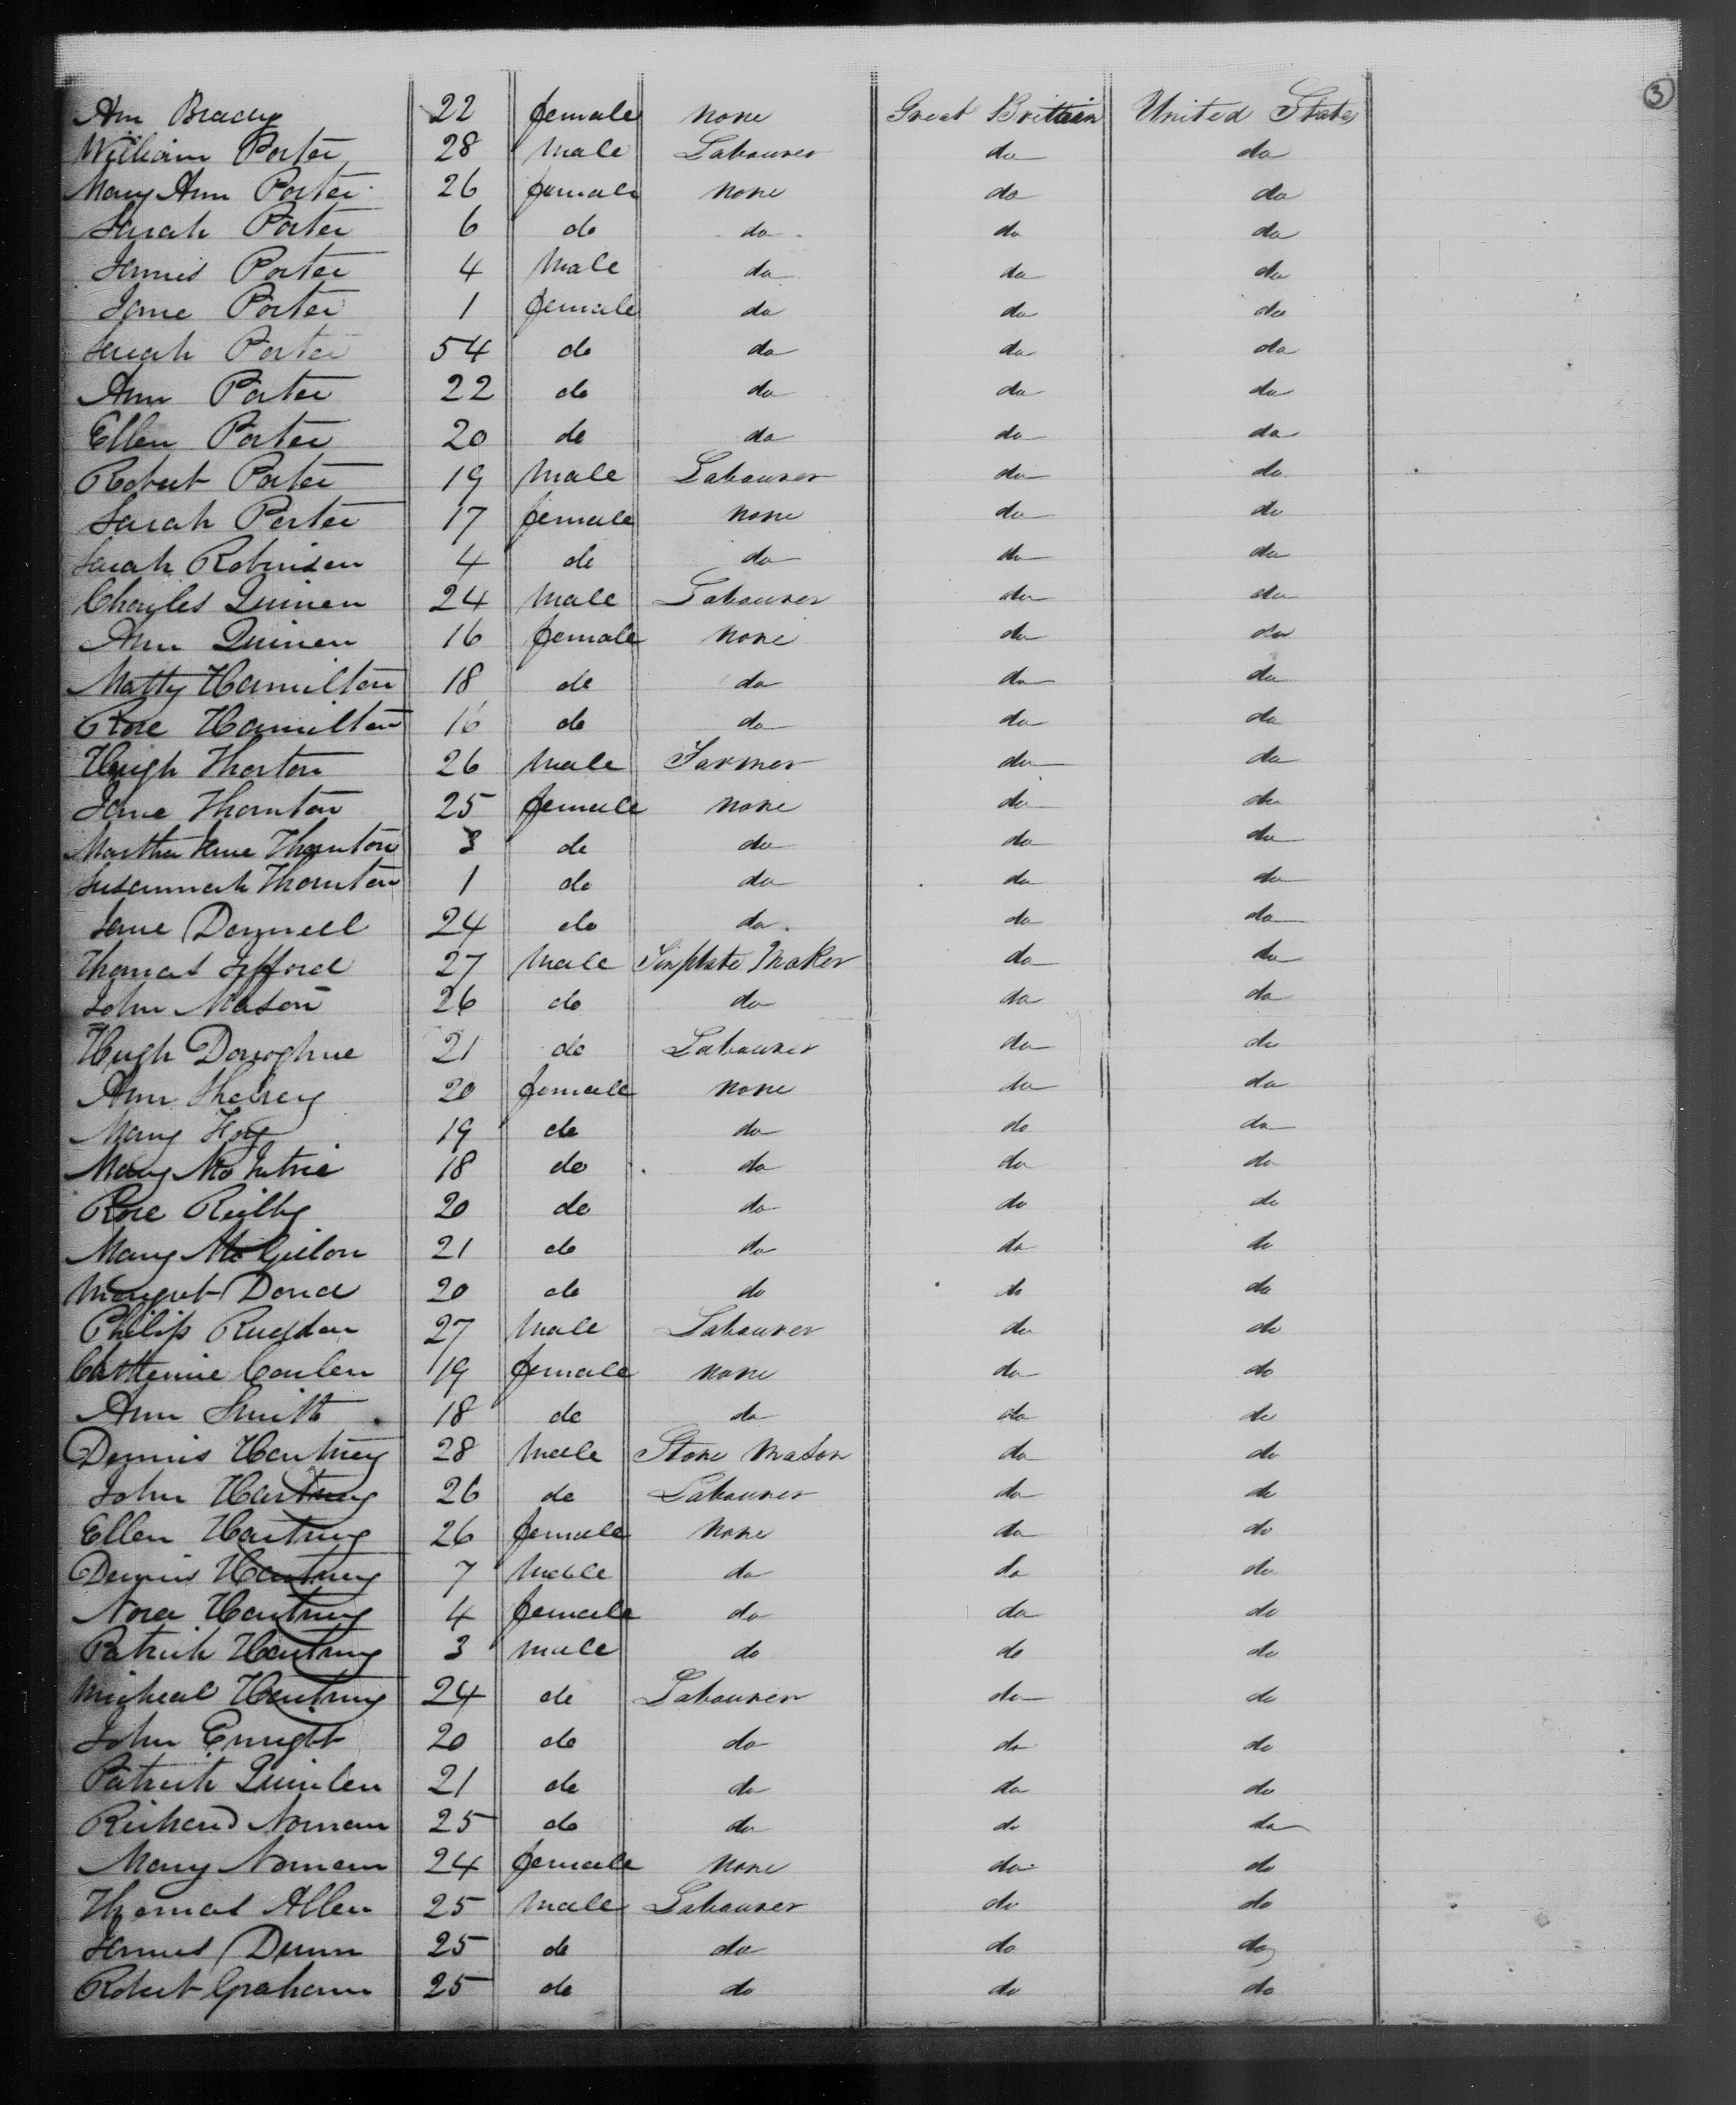 3
Ann Brady 22 female none Great Brittain United States
William Porter 28 Male Labourer do do
Mary Ann Porter 26 female none do do
Sarah Porter 6 do do do do
James Porter 4 Male do do do
Jane Porter 1 female do do do
Sarah Porter 54 do do do do
Ann Porter 22 do do do do
Ellen Porter 20 do do do do
Robert Porter 19 Male Labourer do do
Sarah Porter 17 female none do do
Sarah Robinson 4 do do do do
Charles Quinen 24 Male Labourer do do
Ann Quinen 16 female none do do
Matty Hamilton 18 do do do do
Rose Hamilton 16 do do do do
Hugh Thorton 26 Male Farmer do do
Jane Thornton 25 female none do do
Martha Jane Thornton 3 do do do do
Susannah Thornton 1 do do do do
Jane 24 do do do do
Thomas 27 Male Tinplate Maker do do
John Mason 26 do do do do
Hugh Donoghue 21 do Labourer do do
Ann 20 female none do do
Mary Hoy 19 do do do do
Mary 18 do do do do
Rose Reilly 20 do do do do
Mary 21 do do do do
Margret Dowd 20 do do do do
Philip 27 Male Labourer do do
Chatterine Conlen 19 female none do do
Ann Smith 18 do do do do
Dennis Hartney 28 Male Stone Mason do do
John Hartney 26 do Labourer do do
Ellen Hartney 26 female none do do
Dennis Hartney 7 Male do do do
Nora Hartney 4 female do do do
Patrick Hartney 3 male do do do
Micheal Hartney 24 do Labourer do do
John Enright 20 do do do do
Patrick Quinlen 21 do do do do
Richard Norman 25 do do do do
Mary Norman 24 female none do do
Thomas Allen 25 Male Labourer do do
James Dunn 25 do do do do
Robert Graham 25 do do do do